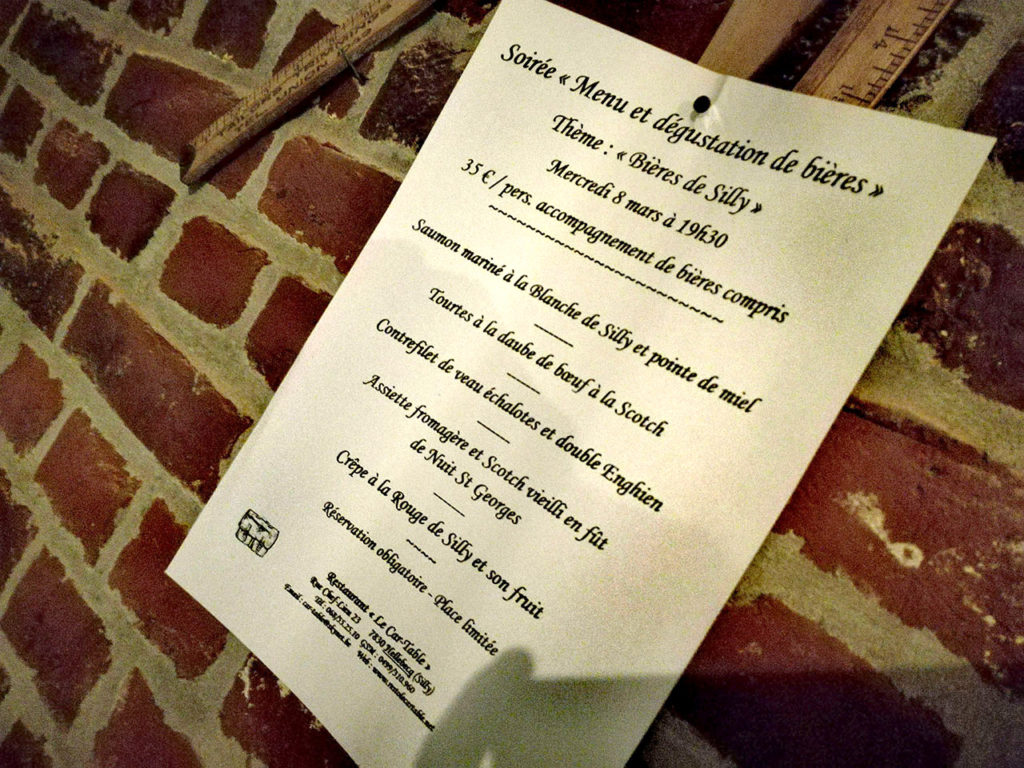 Soirée « Menu et dégustation de bières »
Thème : « Bières de Silly »
Mercredi 8 mars à 19h30
35 € / pers. accompagnement de bières compris
~~~~~~~~~~~~~~~~~~~~
Saumon mariné à la Blanche de Silly et pointe de miel
Tourtes à la daube de bœuf à la Scotch
Contrefilet de veau échalotes et double Enghien
Assiette fromagère et Scotch vieilli en fût
de Nuit St Georges
Crêpe à la Rouge de Silly et son fruit
~~~~
Réservation obligatoire - Place limitée
Restaurant « Le Car-Table »
Rue Chef-Lieu 23 7830 Hellebecq (Silly)
Tél : 068/55.25.10 GSM : 0499/310.960
Email : car-table@skynet.be Web :